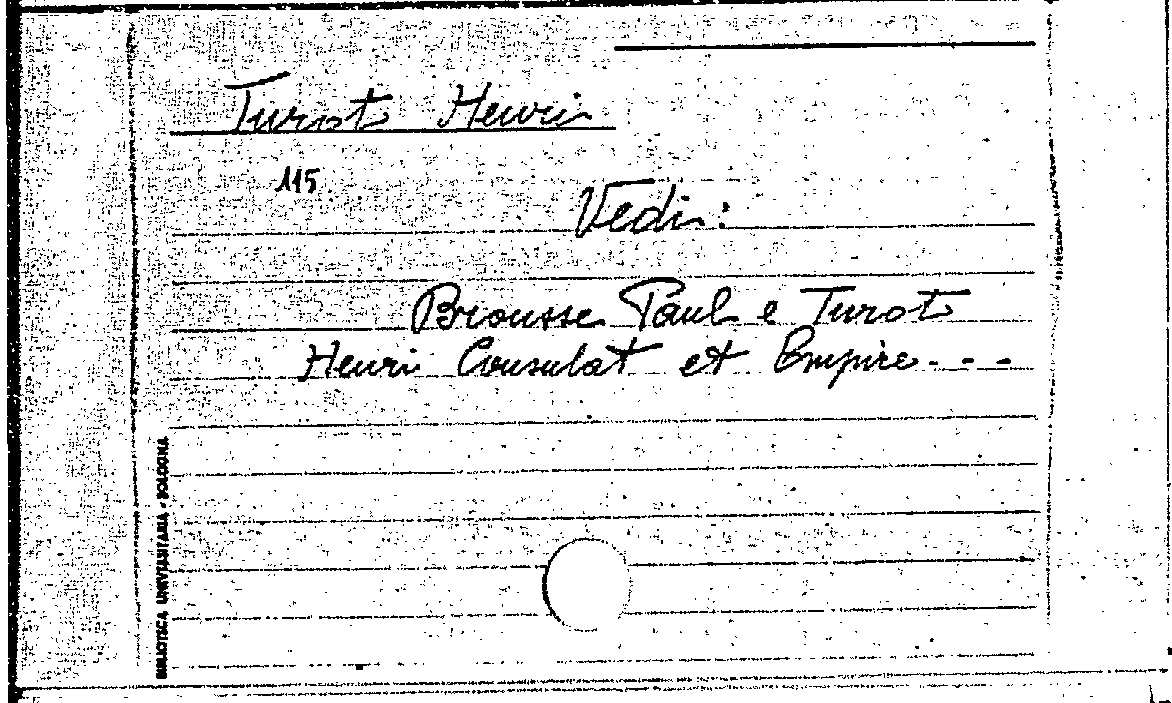 Turot Henri
115
Vedi:
Brousse Paul e Turot
Henri Consulat et Empire - - -
BIBLIOTECA UNIVERSITARIA - BOLOGNA